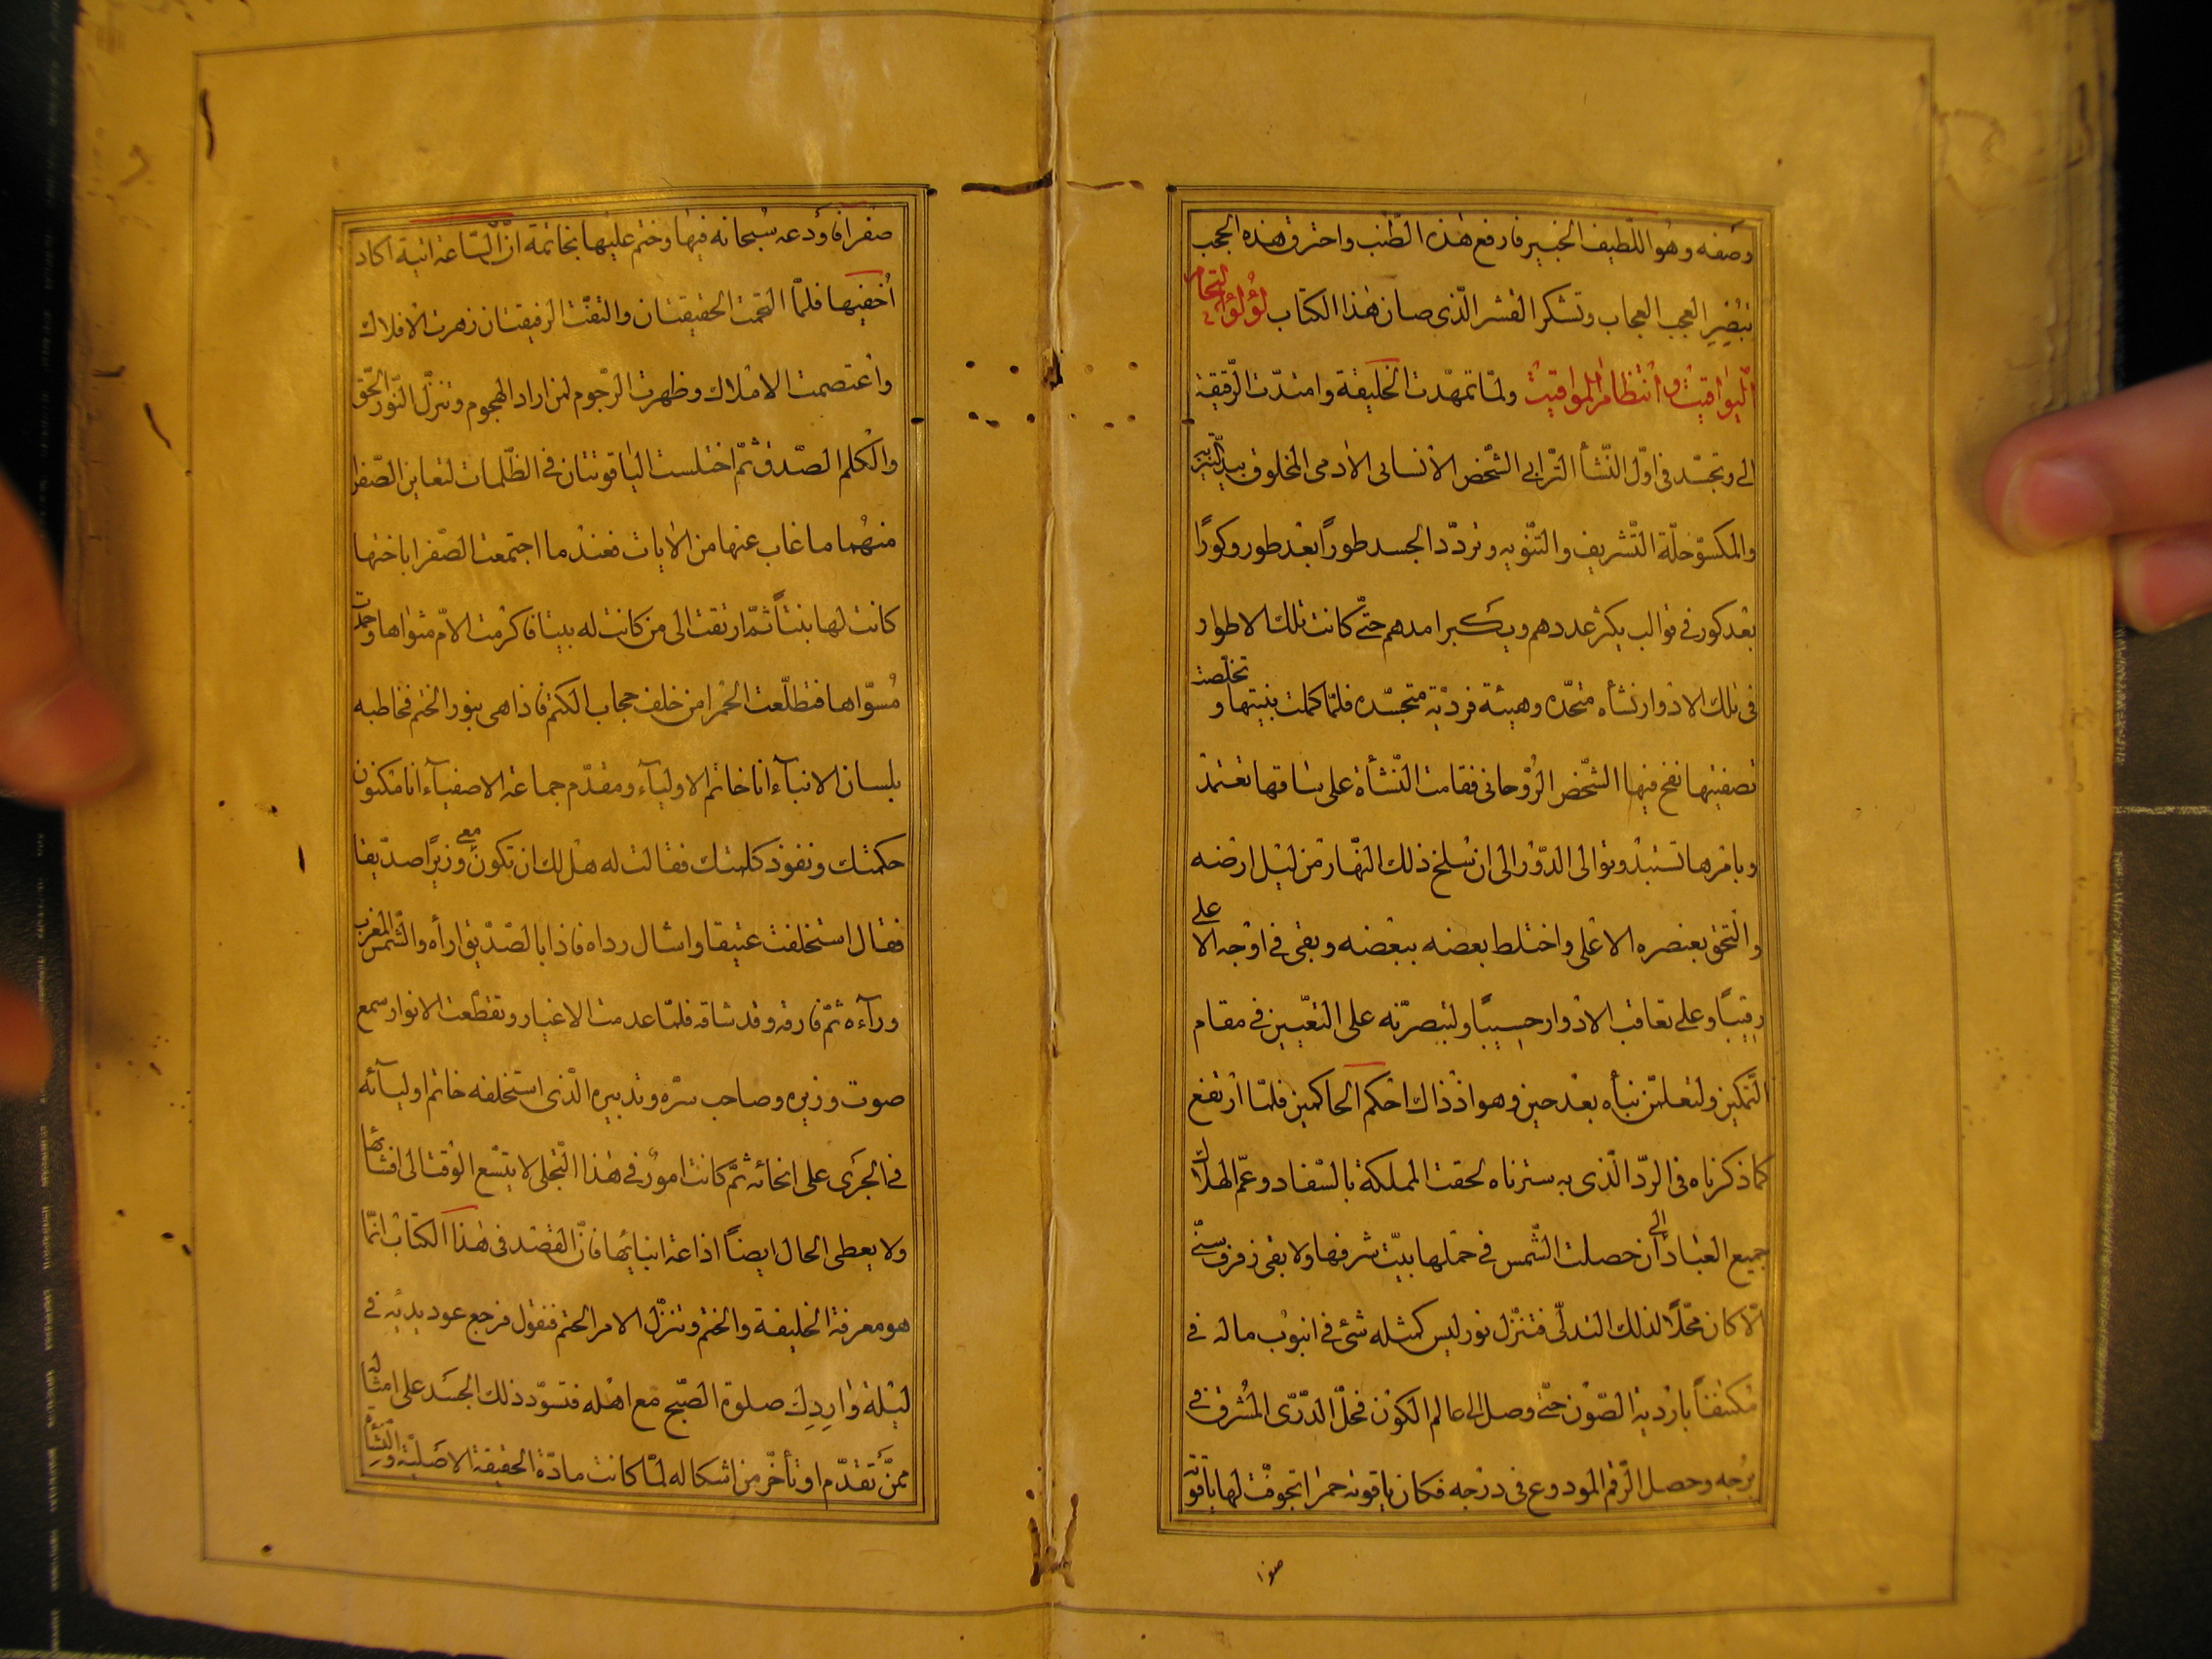 وصفه وهو اللّطيف الخبير فارفع هذه الطّنب واحترق هذه الحجب
تبصر العجب العجاب وتشكر القشر الّذى صان هذا الكتاب لؤلؤة التحام
اليواقيت وانتظام المواقيت ولمّا تمهّدت الخليقة وامتدّت الرّقيقة
الى وتجسّد فى اوّل النّشأ التّرابى الشّخص الانسانى الادمى المخلوق بيد التنزيه
والمكسوّ حلّة التّشريف والتّنويه وتردّد الجسد طوراً بعد طور وكوراً
بعد كور فى قوالب يكثر عددهم ويكبر امدهم حتّى كانت تلك الاطوار
فى تلك الادوار نشأه متحّده وهيئة فرديّة متجسّده فلمّا كملت بنيتها و تخلّصت
تصفيتها نفخ فيها الشّخص الرّوحانى فقامت النّشأة على ساقها تعتمد
وبامرها تستبدّ وتوالى الدّور الى ان سلخ ذلك النّهار من ليل ارضه
والتحق بعنصره الاعلى واختلط بعضه ببعضه وبقى فى اوجه الا على
رقيباً وعلى تعاقب الادوار حسيباً ولتبصرنّه على التعّيين فى مقام
التّمكين ولتعلمنّ نبأه بعد حين وهو اذ ذاك احكم الحاكمين فلمّا ارتفع
كما ذكرناه فى الردّ الّذى به سترناه لحقت المملكة بالسّفاد وعمّ الهلاك
جميع العباد الى ان حصلت الشّمس فى حملها بيت شرفها ولا بقى زفرف سنىّ
الّا كان محّلاً لذلك التدلّى فتنزّل نور ليس كمثله شئ فى انبوب ماله فى
مكتنفاً باردية الصّون حتّى وصل الى عالم الكون فحلّ الدّرّى المشرق فى
برجه وحصل الرّقم المودوع فى درجه فكان ياقوته حمرا تجوفّت لها ياقوتة
صفرا
صفرا فاودعه سبحانه فيها وختم عليها بخاتمة انّ السّاعة اتية اكاد
اخفيها فلمّا التحمت الحقيقتان والتفّت الرقيقتان زهرت الافلاك
واعتصمت الاملاك وظهرت الرّجوم لمن اراد الهجوم وتنزّل النّور الحّق
والكلم الصّدق ثمّ اختلست الياقوتتان فى الظّلمات لتعاين الصّفرا
منهما ما غاب عنها من الايات فعندما اجتمعت الصّفرا باختها
كانت لها بنتاً ثمّ ارتقت الى من كانت له بيتا فاكرمت الامّ مثواها وحمدت
مسوّاها فتطلّعت الحمرا من خلف حجاب الكتم فاذا هى بنور الختم فخاطبه
بلسان الانبآء انا خاتم الاوليآء ومقدّم جماعة الاصفيآء انا مكنون
حكمتك ونفوذ كلمتك فقالت له هل لك ان تكون معى وزيراً صدّيقا
فقال استخلفت عتيقا واشال رداه فاذا بالصّدّيق ارأه والشّمس المغرب
ورآءه ثمّ فارقه وقد شاقه فلمّا عدمت الاغيار وتقطّعت الانوار سمع
صوت وزيره وصاحب سرّه وتدبيره الّذى استخلفه خاتم اوليآئه
فى الجرى على انحائه ثمّ كانت امور فى هذا التجلى لا يتسّع الوقت الى افشائها
ولا يعطى الحال ايضاً اذاعة انبائها فانّ القصد فى هذا الكتاب انّما
هو معرفة الخليفة والختم وتنزّل الامر الحتم فنقول فرجع عود بدئه فى
ليلة وادرك صلوة الصّبح مع اهله فتسوّد ذلك الجسد على امثاله
ممّن تقدّم او تأخّر من اشكاله لمّا كانت مادّة الحقيقة الاصليّة والنّشأة